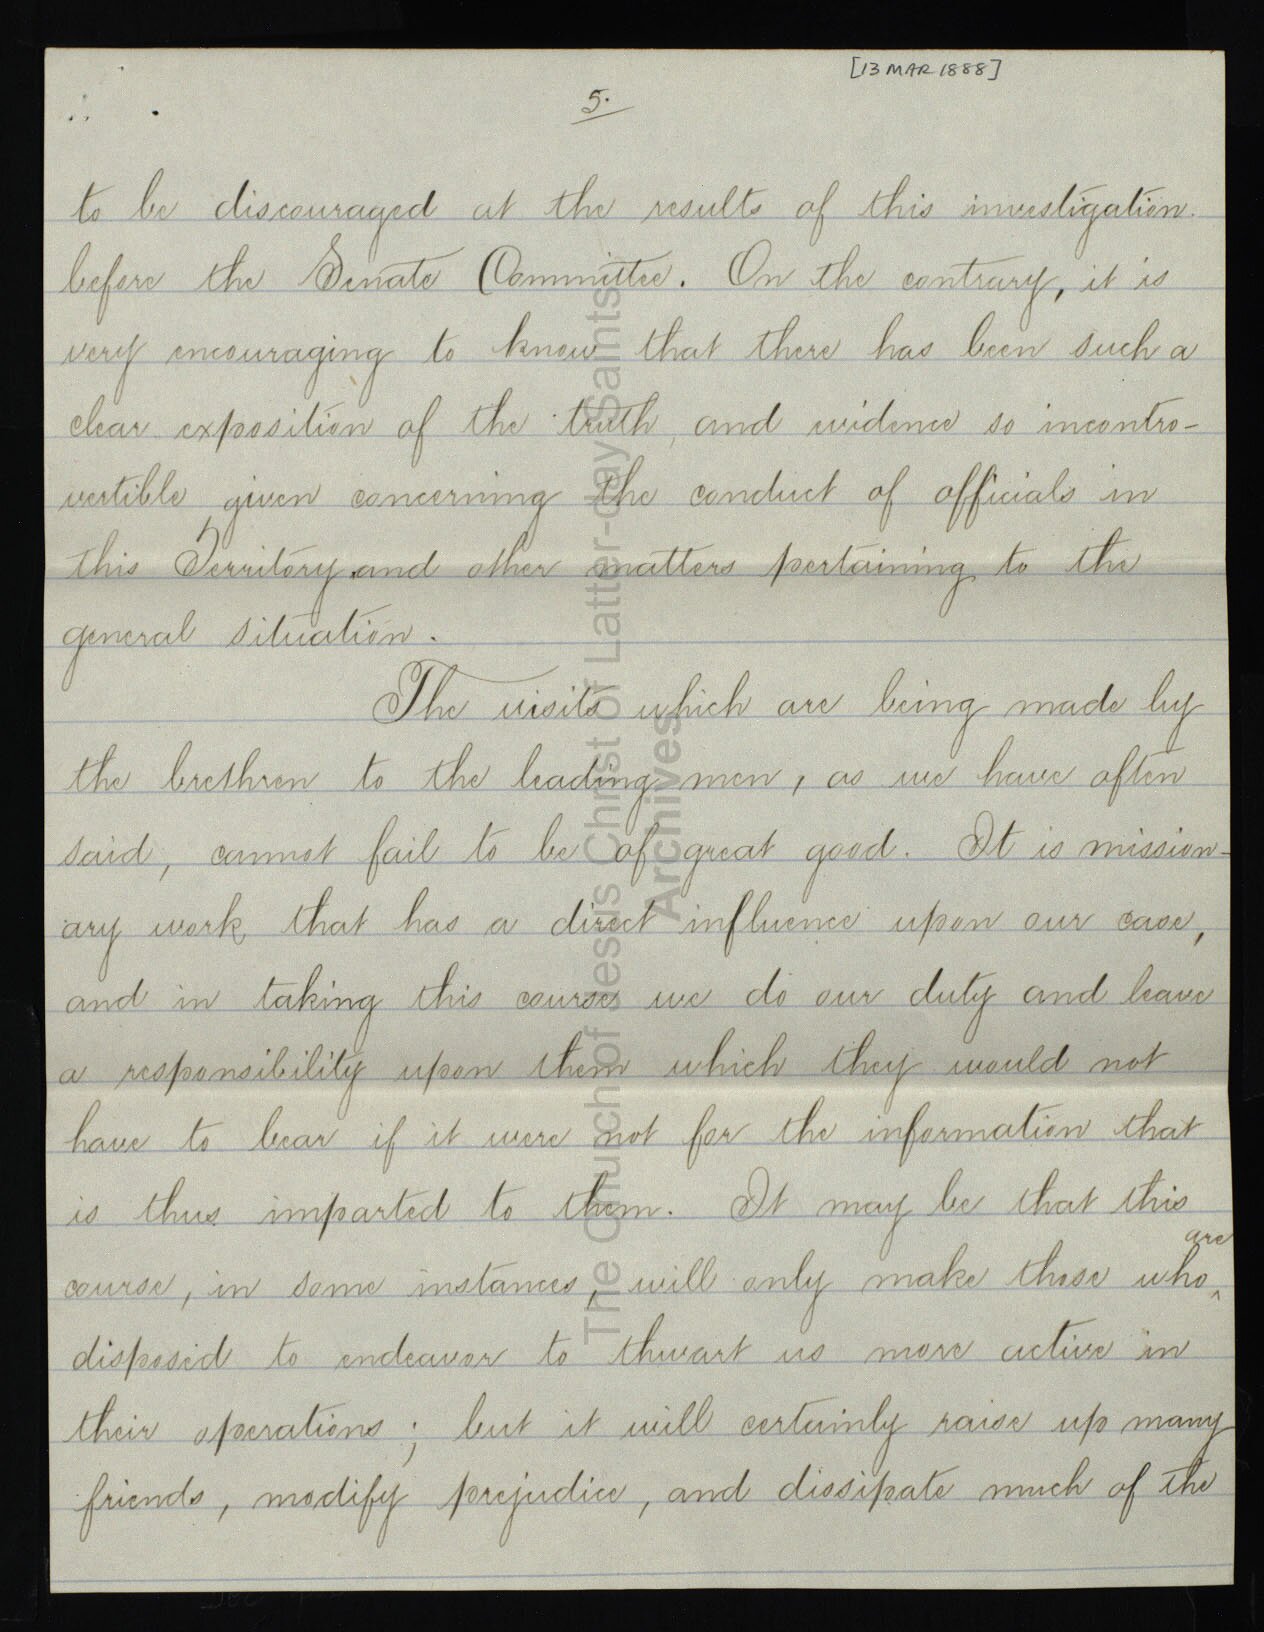 [13 MAR 1888]
5.
to be discouraged at the results of this investigation
before the Senate Committee. On the contrary, it is
very encouraging to know that there has been such a
clear exposition of the truth, and evidence so incontro-
vertible given concerning the conduct of officials in
this Territory and other matters pertaining to the
general situation.
The visits which are being made by
the brethren to the leading men, as we have often
said, cannot fail to be of great good. It is mission-
ary work that has a direct influence upon our case,
and in taking this course we do our duty and leave
a responsibility upon them which they would not
have to bear if it were not for the information that
is thus imparted to them. It may be that this
are
course, in some instances, will only make those who^
disposed to endeavor to thwart us more active in
their operations; but it will certainly raise up many
friends, modify prejudice, and dissipate much of the
The Church of Jesus Christ of Latter-day Saints
Archives